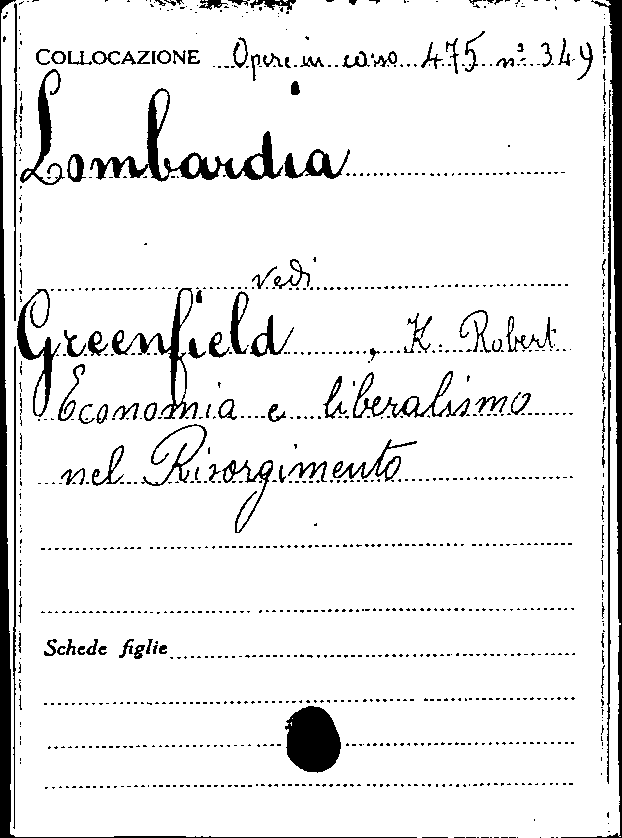 COLLOCAZIONE Opere in corso 475 n° 349
Lombardia
vedi
Greenfield, K. Robert
Economia e liberalismo
nel Risorgimento
Schede figlie